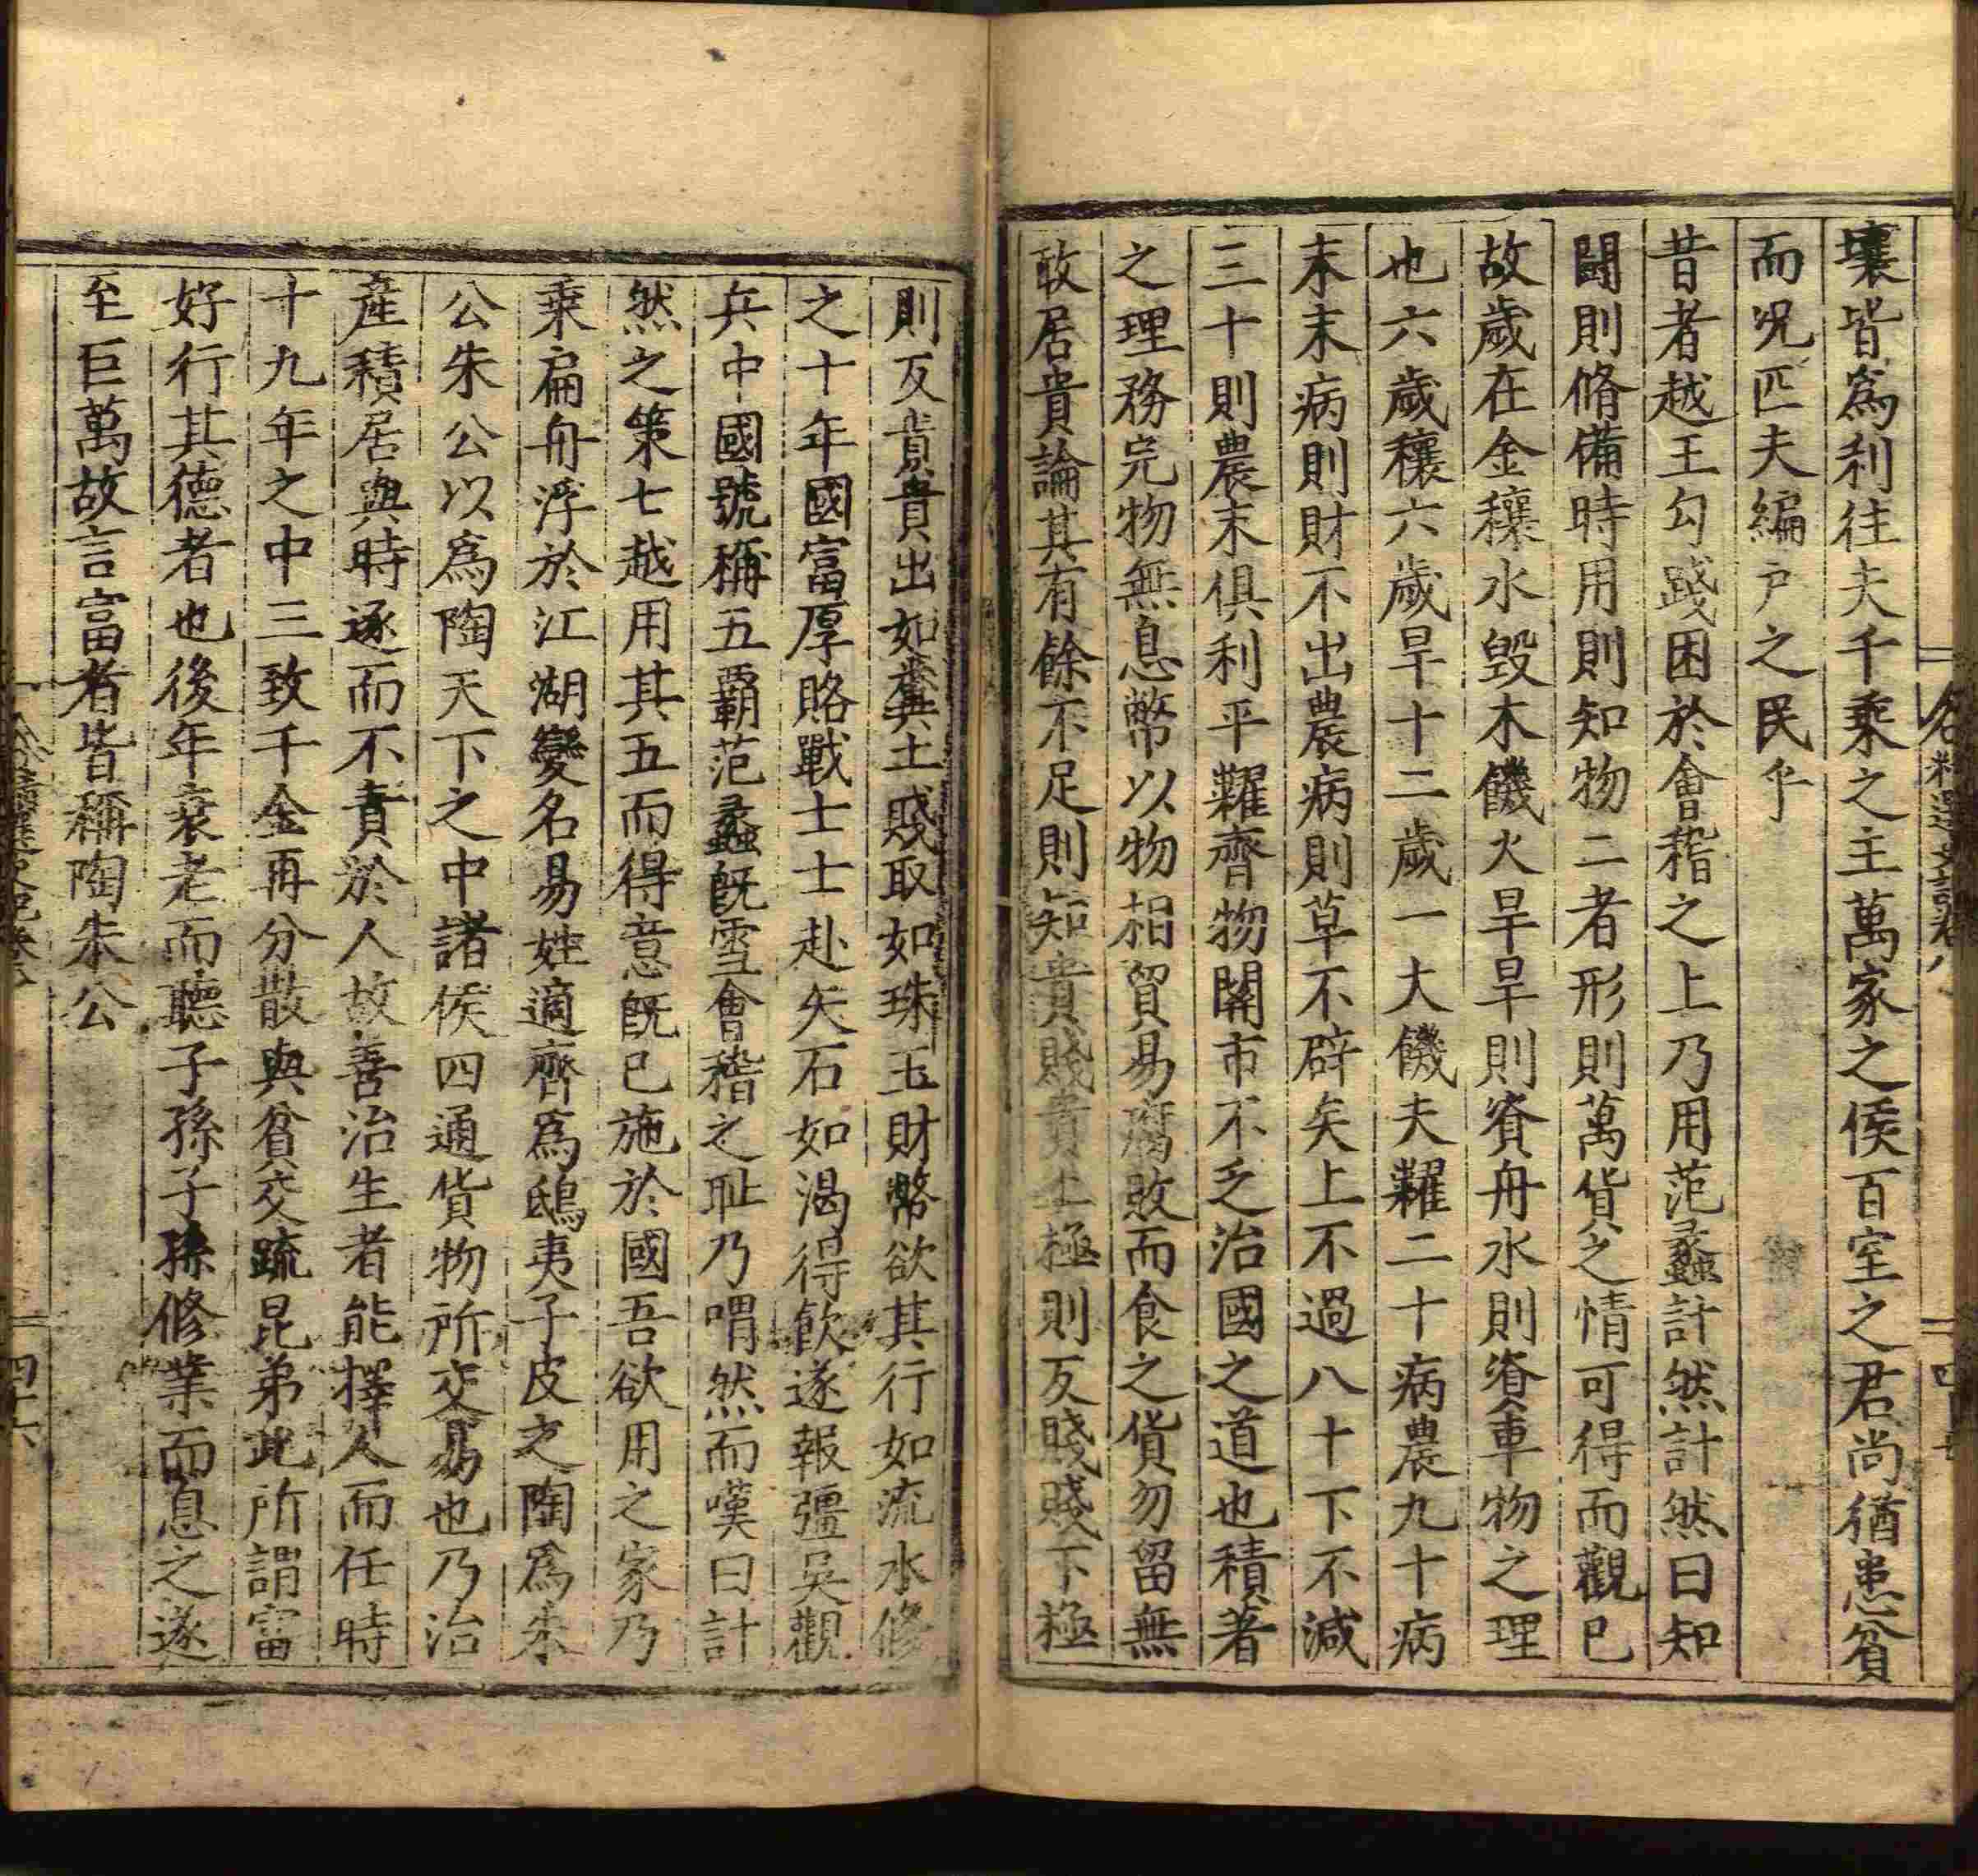 壤皆爲利往夫千乘之主萬家之侯百室之君尚猶患貧
而況匹夫編戸之民乎
昔者越王勾踐困於會稽之上乃用范蠡計然計然曰知
鬪則脩備時用則知物二者形則萬貨之情可得而觀已
故歲在金穰水毀木饑火旱旱則資舟水則資車物之理
也六歲穰六歲旱十二歲一大饑夫糶二十病農九十病
末末病則財不出農病則草不辟矣上不過八十下不減
三十則農末俱利平糶齊物關市不乏治國之道也積著
之理務完物無息幣以物相貿易腐敗而食之貨勿留無
敢居貴論其有餘不足則知貴賤貴上極則反賤賤下極
則反貴貴出如糞土賤取如珠玉財幣欲其行如流水修
之十年國富厚賂戰士士赴矢石如渴得飲遂報彊吳觀
兵中國號稱五霸范蠡既雪會稽之耻乃喟然而嘆曰計
然之策七越用其五而得意既已施於國吾欲用之家乃
乘扁舟浮於江湖變名易姓適齊爲鴟夷子皮之陶爲朱
公朱公以爲陶天下之中諸侯四通貨物所交易也乃治
產積居與時逐而不責於人故善治生者能擇人而任時
十九年之中三致千金再分散與貧交疏昆弟此所謂富
好行其德者也後年衰老而聽子孫子孫修業而息之遂
至巨萬故言富者皆稱陶朱公